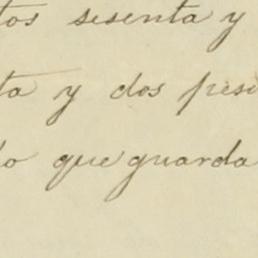 tos sesenta y
ta y dos pes
lo que guarda